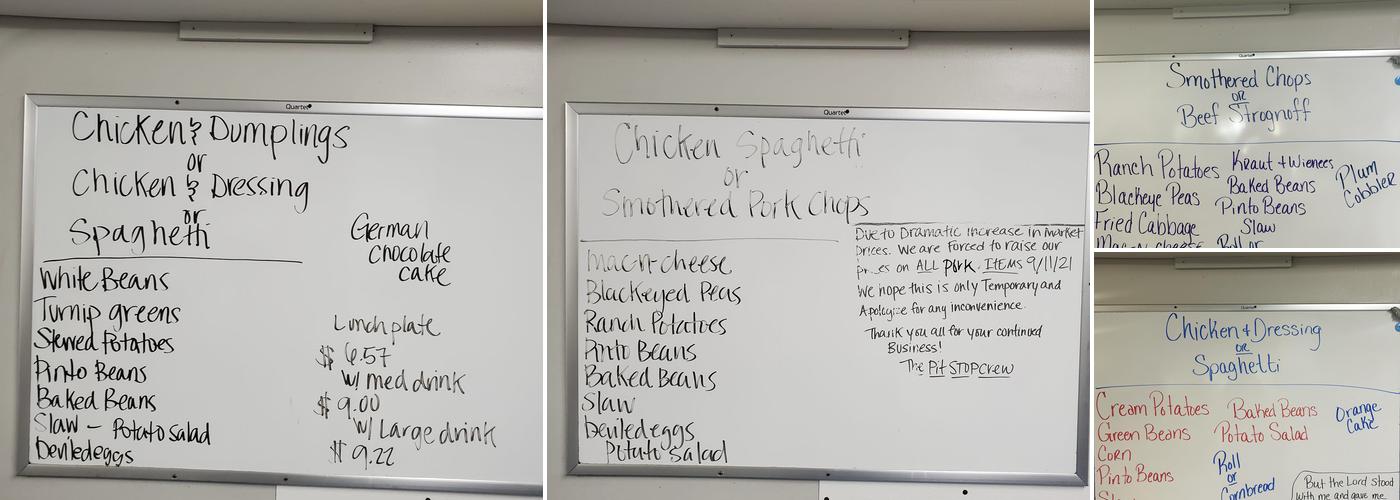 Quartet
Chicken & Dumplings
or
Chicken & Dressing
or
Spaghetti
German
chocolate
cake
White Beans
Turnip greens
Stewed Potatoes
Pinto Beans
Baked Beans
Slaw - Potato Salad
Deviledeggs
Lunch plate
$ 6.57
w/ med drink
$ 9.00
w/ Large drink
$ 9.22
Quartet
Chicken Spaghetti
or
Smothered Pork Chops
mac-n-cheese
Blackeyed Peas
Ranch Potatoes
Pinto Beans
Baked Beans
Slaw
Deviledeggs
Potato Salad
Due to Dramatic increase in Market
prices. We are Forced to raise our
on ALL Pork ITEMS 9/11/21
We hope this is only Temporary and
Apologize for any inconvenience.
Thank you all for your continued
Business!
The Pit STOP Crew
Quartet
Smothered Chops
OR
Beef Strognoff
Ranch Potatoes
Blackeye Peas
Fried Cabbage
Mac-n-cheese
Kraut + Wienees
Baked Beans
Pinto Beans
Slaw
Roll or
Plum
Cobbler
Quartet
Chicken + Dressing
OR
Spaghetti
Cream Potatoes
Green Beans
Corn
Pinto Beans
Baked Beans
Potato Salad
Roll
or
Cornbread
Orange
Cake
But the Lord stood
with me and gave me